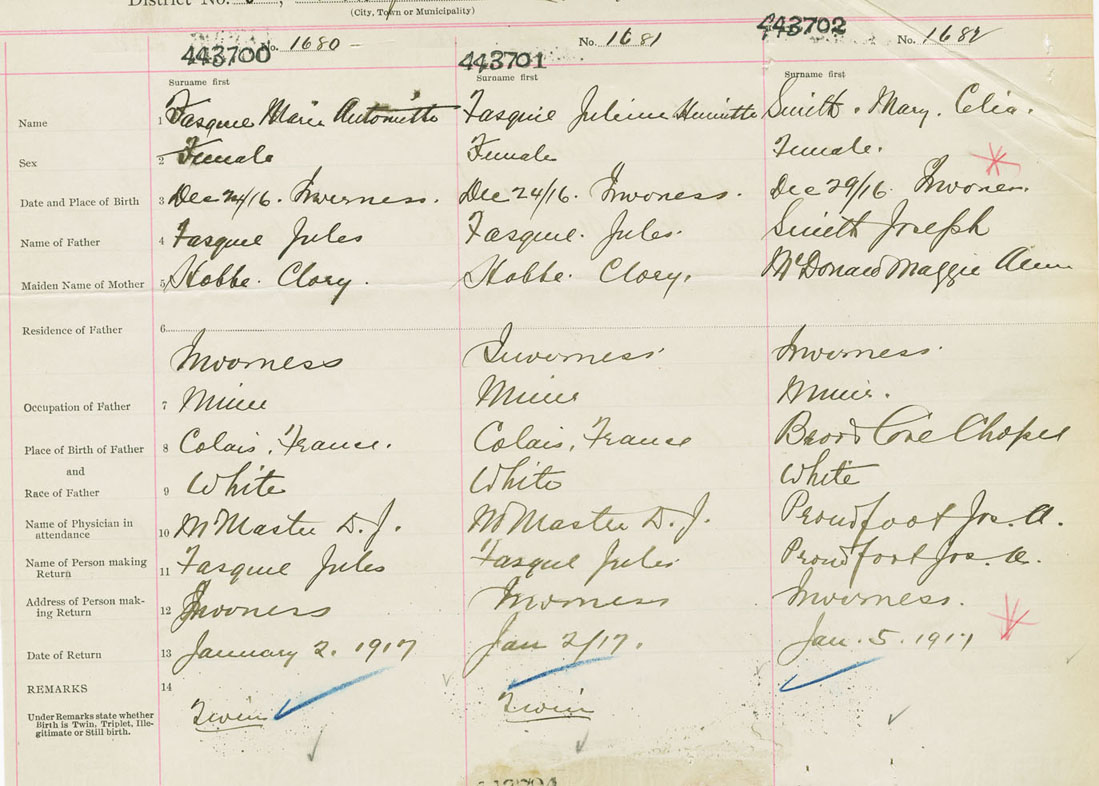 District No.
(City, Town or Municipality)
443700 No. 1680
443701 No. 1681
443702 No. 1682
Surname first Surname first Surname first
Name 1 Fasquie Marie Antoinette Fasquie Julienne Henriette Smith. Mary. Celia.
Sex 2 Female Female Female.
Date and Place of Birth 3 Dec 24/16. Inverness. Dec 24/16. Inverness. Dec 29/16. Inverness.
Name of Father 4 Fasquie Jules Fasquie. Jules. Smith Joseph
Maiden Name of Mother 5 Hobbe. Clory. Hobbe. Clory. McDonald Maggie Ann
Residence of Father 6
Inverness Inverness. Inverness.
Occupation of Father 7 Miner Miner Miner.
Place of Birth of Father 8 Calais, France. Calais, France Broad Cove Chapel
and
Race of Father 9 White White White
Name of Physician in
attendance 10 McMaster D. J. McMaster D. J. Proudfoot Jos. A.
Name of Person making
Return 11 Fasquie Jules Fasquie Jules Proudfoot Jos. A.
Address of Person mak-
ing Return 12 Inverness Inverness Inverness.
Date of Return 13 January 2. 1917 Jan 2/17. Jan. 5. 1917
REMARKS 14
Under Remarks state whether
Birth is Twin, Triplet, Ille-
gitimate or Still birth.
Twin Twin